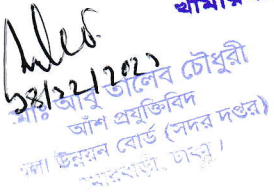 ১৪/১২/২০২১
মোঃ আবু তালেব চৌধুরী
আঁশ প্রযুক্তিবিদ
তুলা উন্নয়ন বোর্ড (সদর দপ্তর)
খামারবাড়ী, ঢাকা।